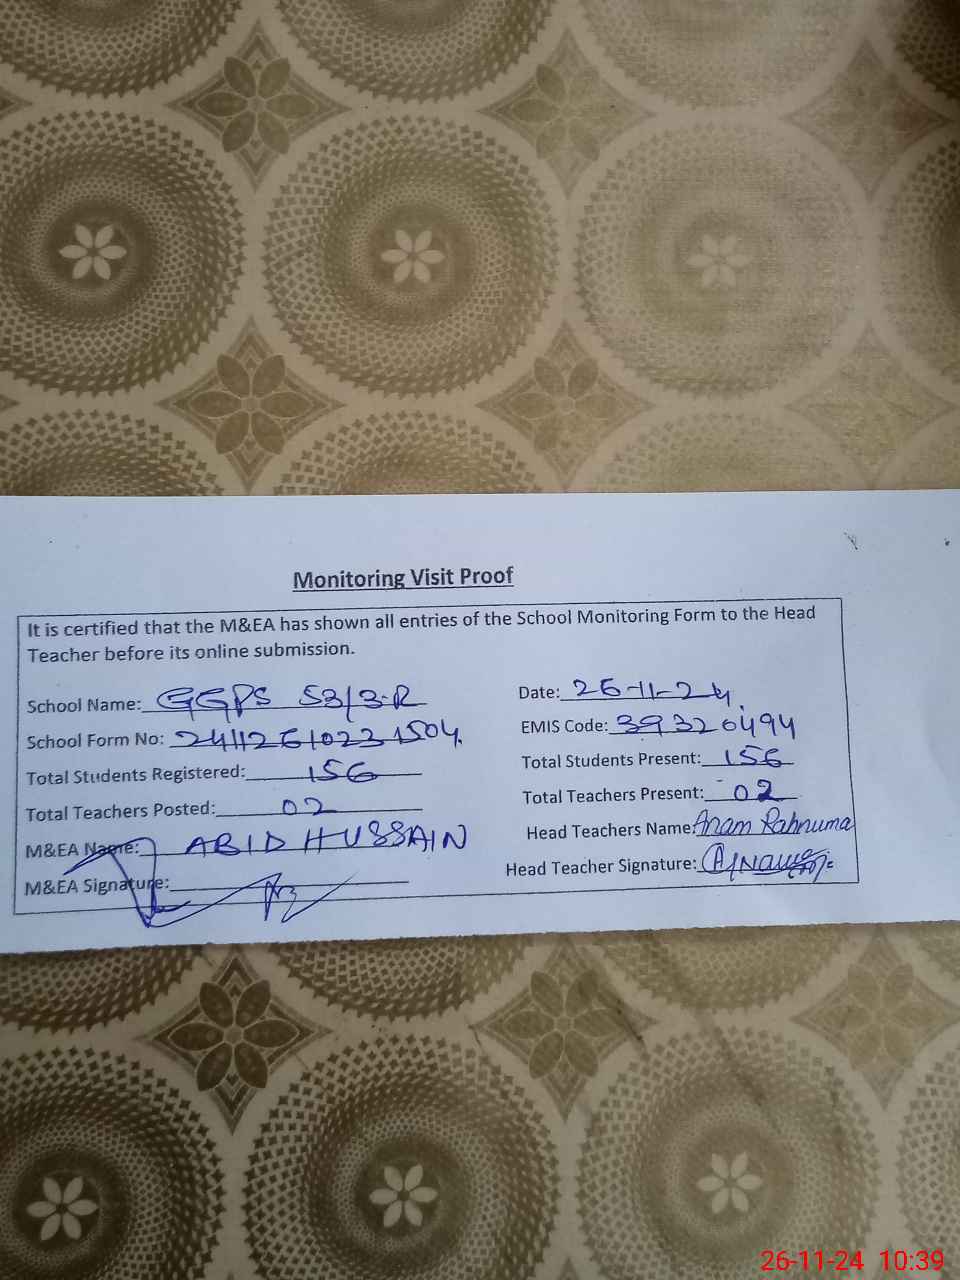 Monitoring Visit Proof
It is certified that the M&EA has shown all entries of the School Monitoring Form to the Head
Teacher before its online submission.
School Name: GGPS 53/3-R
Date: 26-11-24.
School Form No: 24112610231504.
EMIS Code: 39320494
Total Students Registered: 156
Total Students Present: 156
Total Teachers Posted: 02
Total Teachers Present: 02
M&EA Name: ABID HUSSAIN
Head Teachers Name: Anam Rahnuma
M&EA Signature:
Head Teacher Signature:
26-11-24 10:39